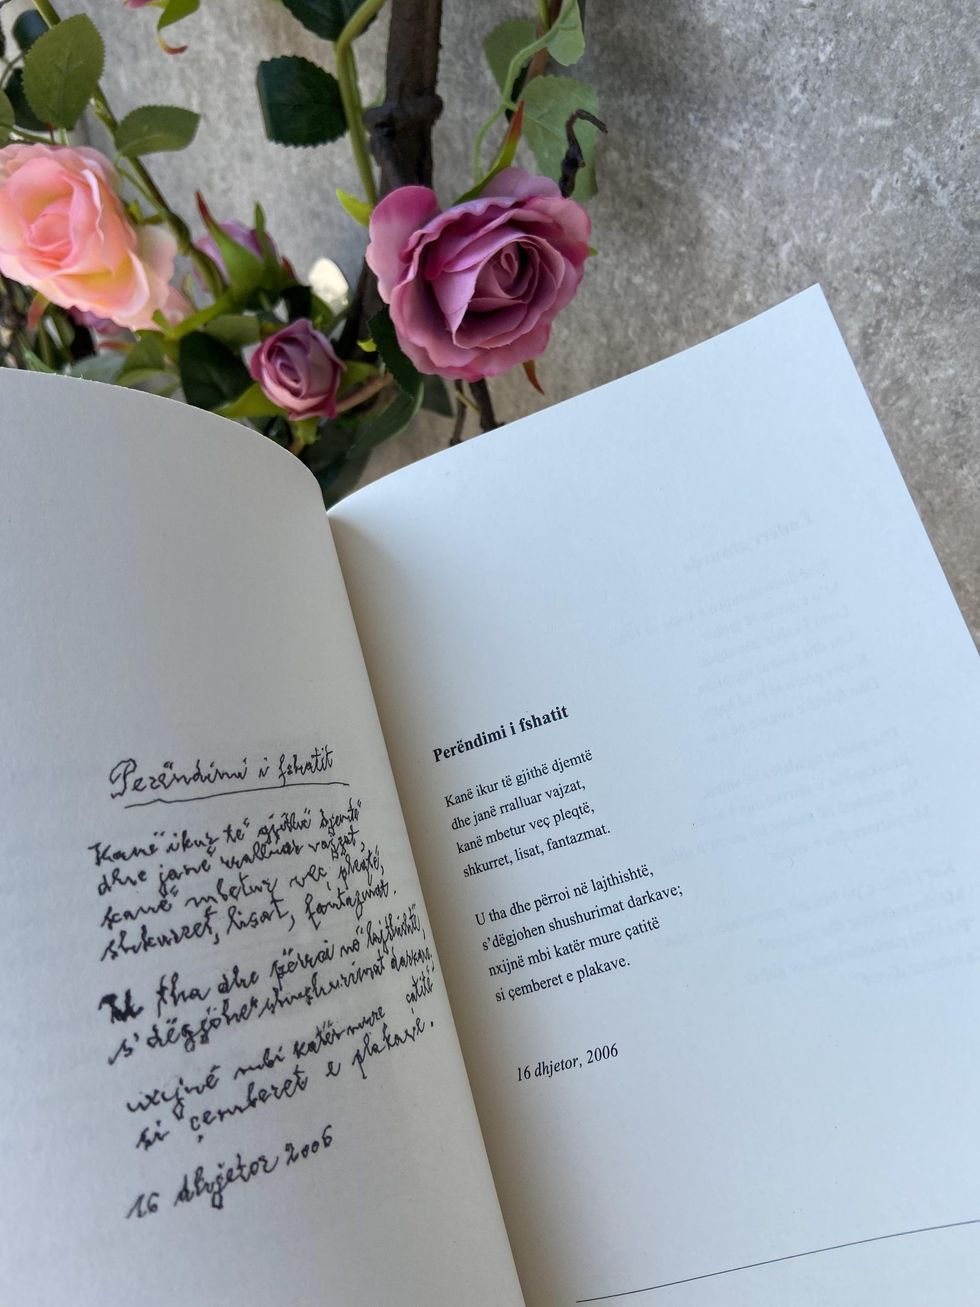 Perëndimi i fshatit
Kanë ikur të gjithë djemtë
dhe janë rralluar vajzat,
kanë mbetur veç pleqtë,
shkurret, lisat, fantazmat.
U tha dhe përroi në lajthishtë,
s'dëgjohen shushurimat darkave,
nxijnë mbi katër mure çatitë
si çemberet e plakave.
16 dhjetor 2006
Perëndimi i fshatit
Kanë ikur të gjithë djemtë
dhe janë rralluar vajzat,
kanë mbetur veç pleqtë,
shkurret, lisat, fantazmat.
U tha dhe përroi në lajthishtë,
s'dëgjohen shushurimat darkave;
nxijnë mbi katër mure çatitë
si çemberet e plakave.
16 dhjetor, 2006